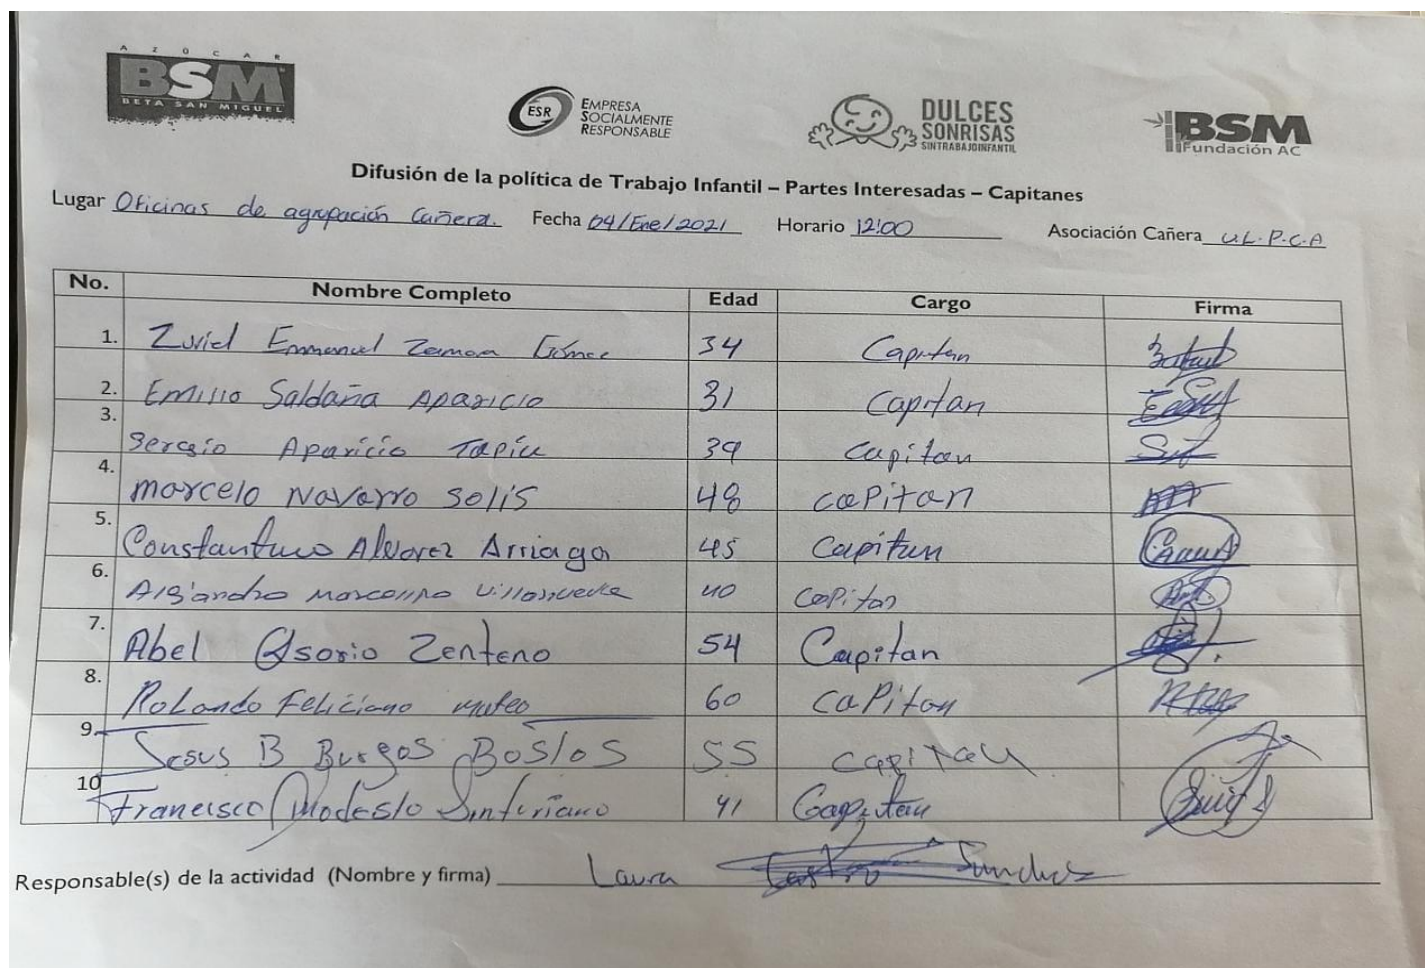 AZÚCAR
BSM
BETA SAN MIGUEL
ESR EMPRESA
SOCIALMENTE
RESPONSABLE
DULCES
SONRISAS
SINTRABAJOINFANTIL
BSM
Fundación AC
Difusión de la política de Trabajo Infantil – Partes Interesadas – Capitanes
Lugar Oficinas de agrupación Cañera. Fecha 04/Ene/2021 Horario 12:00 Asociación Cañera U.L.P.C.A
No. Nombre Completo Edad Cargo Firma
1. Zuriel Emmanuel Zamora Gómez 34 Capitan
2. Emilio Saldaña Aparicio 31 Capitan
3. Sergio Aparicio Tapia 39 Capitan
4. Marcelo Navarro Solis 48 caPitan
5. Constantino Alvarez Arriaga 45 Capitan
6. Marcelino Villanueva 40 caPitan
7. Abel Osorio Zenteno 54 Capitan
8. RoLando FeLiciano mateo 60 caPitan
9. Jesus B Burgos 55 capitan
10 Francisco Modesto 41 Capitan
Responsable(s) de la actividad (Nombre y firma) Laura Castro Sanchez